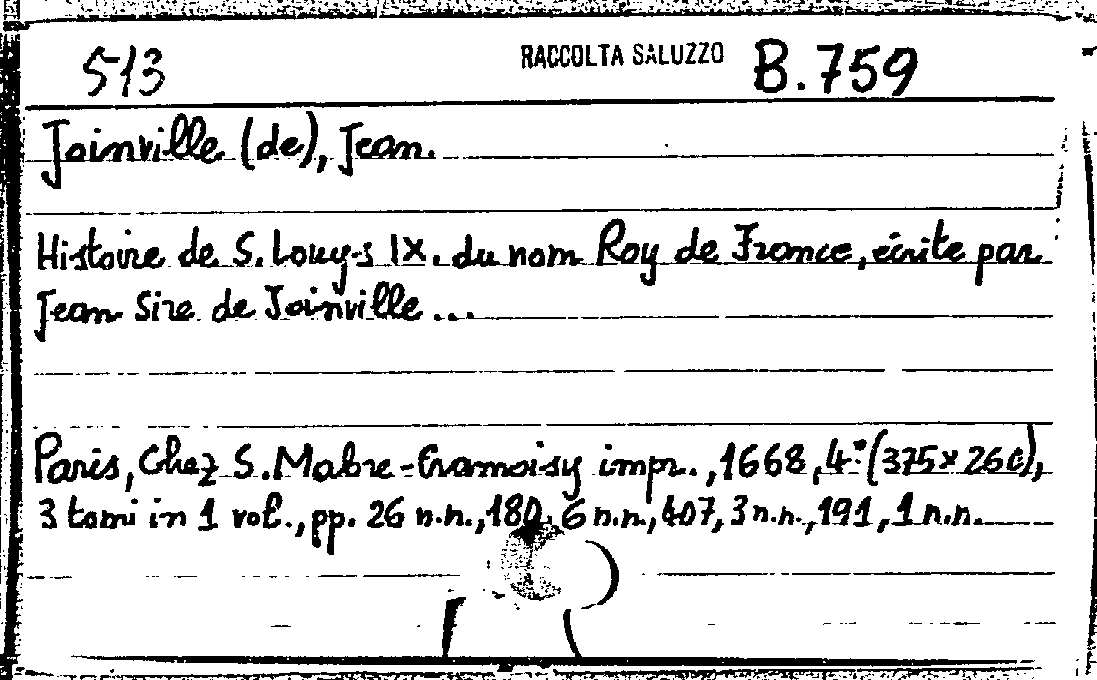 513 RACCOLTA SALUZZO B.759
Joinville (de), Jean.
Histoire de S. Louys IX. du nom Roy de France, écrite par
Jean Sire de Joinville...
Paris, Chez S. Mabre-Cramoisy impr., 1668, 4° (375x260),
3 tomi in 1 vol., pp. 26 n.n., 180, 6 n.n., 407, 3 n.n., 191, 1 n.n.